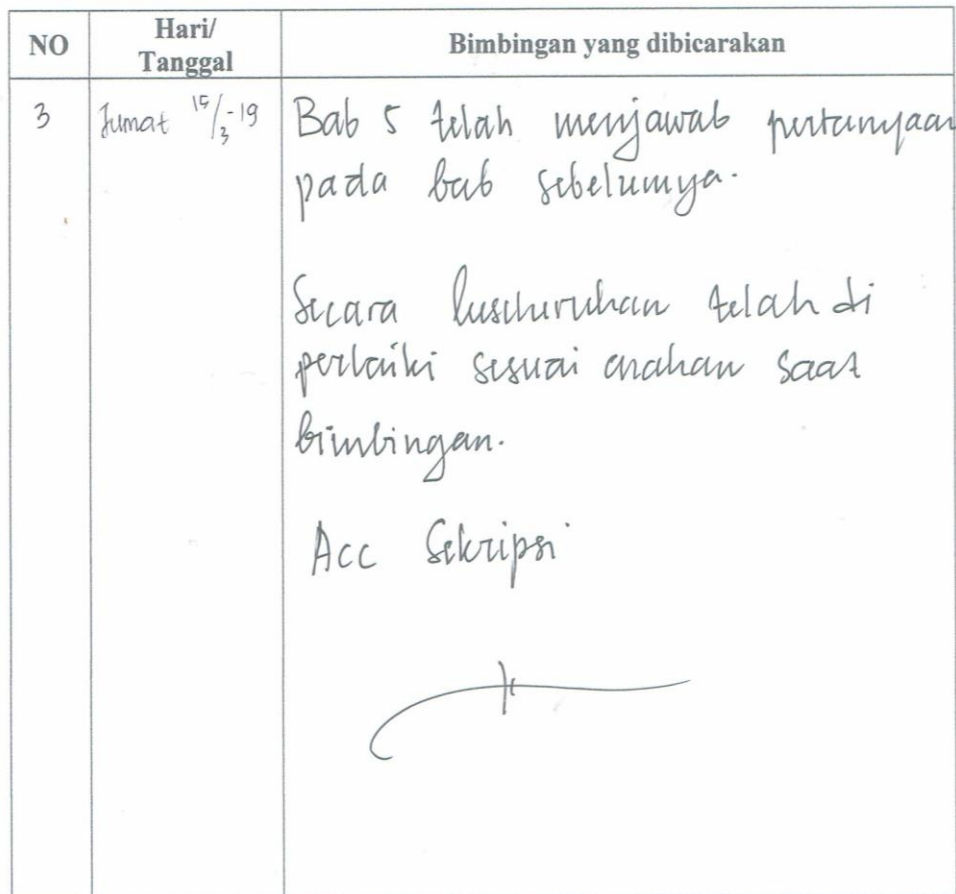 NO Hari/ Bimbingan yang dibicarakan
Tanggal
3 Jumat 15/3-19 Bab 5 telah menjawab pertanyaan
pada bab sebelumnya.
Secara keseluruhan telah di
perbaiki sesuai arahan saat
bimbingan.
Acc Sekripsi